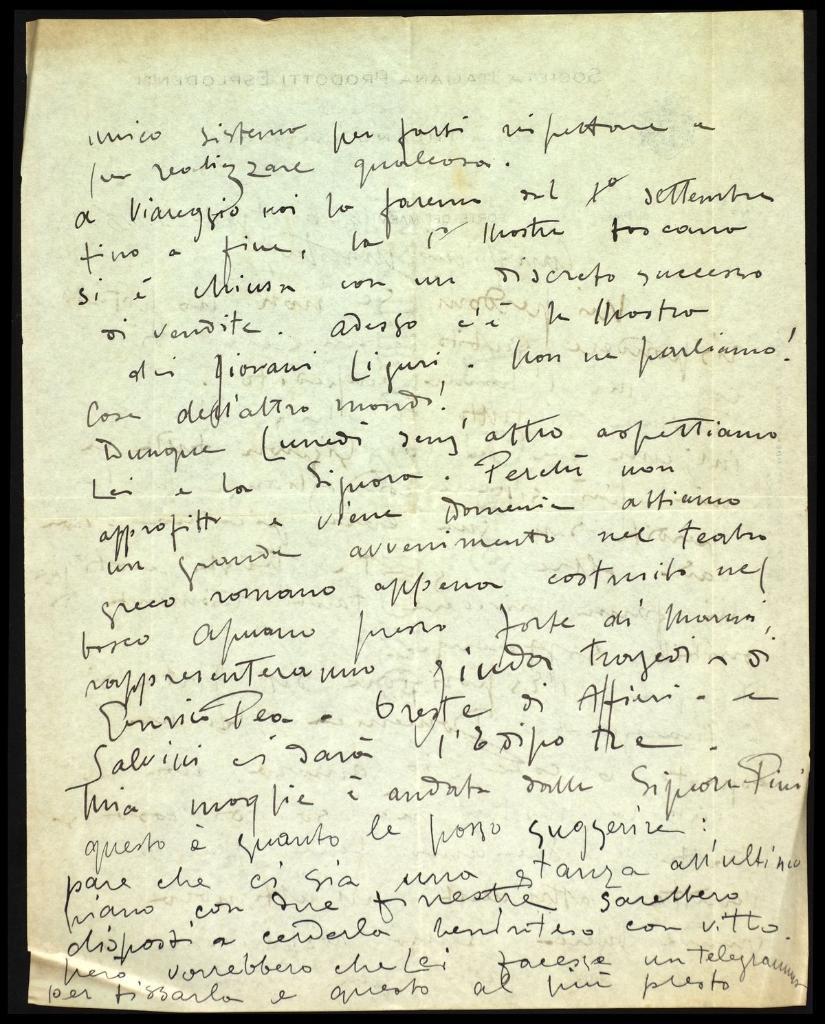 SOCIETÀ ITALIANA PRODOTTI ESPLODENTI
unico sistema per farti rispettare e
per realizzare qualcosa.
a Viareggio noi la faremo dal 1º settembre
fino a fine, la 1ª Mostra toscana
si è chiusa con un discreto successo
di vendite. adesso c'è la Mostra
dei Giovani Liguri. Non ne parliamo!
Cose dell'altro mondo!
Dunque Lunedì senz'altro aspettiamo
Lei e la Signora. Perchè non
approfitta e viene Domenica abbiamo
un grande avvenimento nel teatro
greco romano appena costruito nel
bosco Apuano presso Forte dei Marmi,
rappresenteranno Giuda tragedia di
Enrico Pea - Oreste di Alfieri - e
Salvini ci darà l'Edipo Re -
Mia moglie è andata dalla Signora Pini
questo è quanto le posso suggerire:
pare che ci sia una stanza all'ultimo
piano con due finestre sarebbero
disposti a cederla beninteso con vitto.
però vorrebbero che Lei facesse un telegramma
per fissarla e questo al più presto